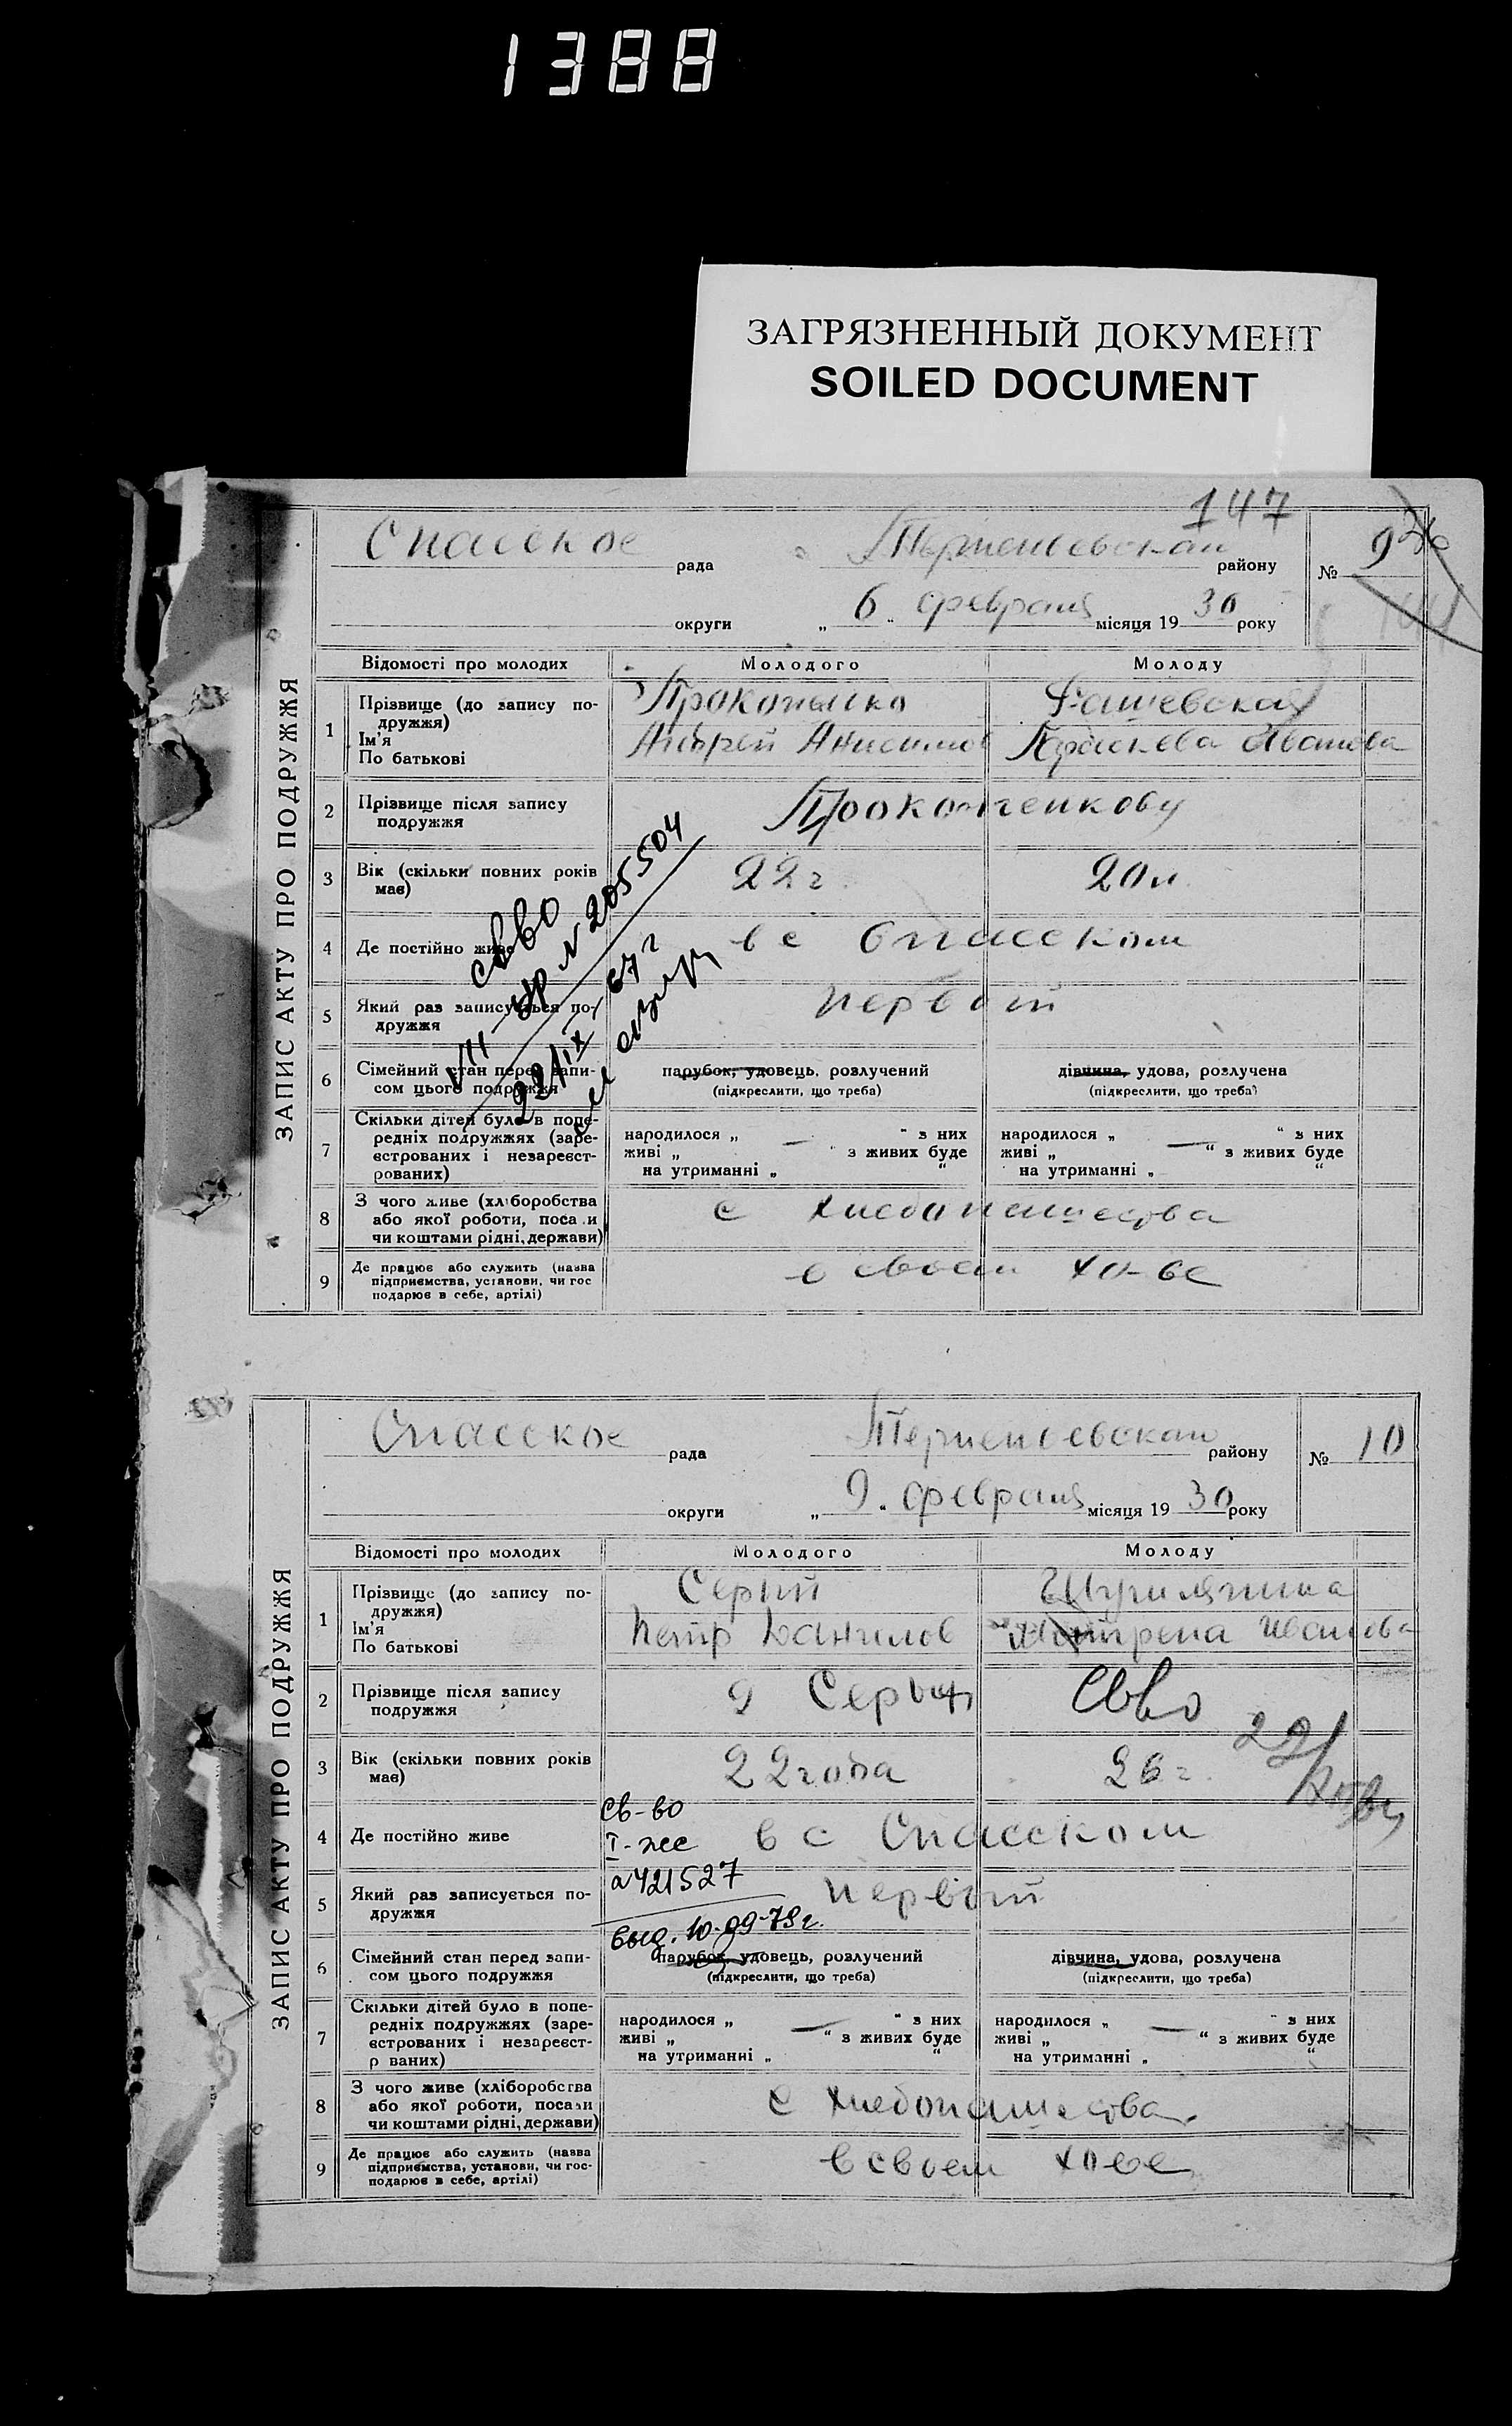 1388
ЗАГРЯЗНЕННЫЙ ДОКУМЕНТ
SOILED DOCUMENT
147
ЗАПИС АКТУ ПРО ПОДРУЖЖЯ
Спасское рада Терпеньевская району № 9
округи „ 6 " февраля місяця 19 30 року
Відомості про молодих Молодого Молоду
1 Прізвище (до запису по-
дружжя)
Ім'я
По батькові
Прокопенко
Андрей Анисимов Иванова
2 Прізвище після запису
подружжя
3 Вік (скільки повних років
має) 22 г. 20 л.
4 Де постійно живе в с Спасском
5 Який раз записується по-
дружжя первый
6 Сімейний стан перед запи-
сом цього подружжя
парубок, удовець, розлучений
(підкреслити, що треба)
дівчина, удова, розлучена
(підкреслити, що треба)
7 Скільки дітей було в попе-
редніх подружжях (заре-
єстрованих і незареєст-
рованих)
народилося „ — " з них
живі „ " з живих буде
на утриманні „ "
народилося „ — " з них
живі „ " з живих буде
на утриманні „ "
8 З чого живе (хліборобства
або якої роботи, посади
чи коштами рідні, держави)
с хлебопашества
9 Де працює або служить (назва
підприємства, установи, чи гос
подарює в себе, артілі)
в своем хо-ве
св-во
VII № 205504
22/IX 67 г
ЗАПИС АКТУ ПРО ПОДРУЖЖЯ
Спасское рада Терпеньевская району № 10
округи „ 9 " февраля місяця 19 30 року
Відомості про молодих Молодого Молоду
1 Прізвище (до запису по-
дружжя)
Ім'я
По батькові
Серый
Петр Данилов Мотрена Иванова
2 Прізвище після запису
подружжя
св-во
3 Вік (скільки повних років
має) 22 года
22/
4 Де постійно живе в с Спасском
5 Який раз записується по-
дружжя первый
св-во
I-жс
№421527
выд. 10-09-79г.
6 Сімейний стан перед запи-
сом цього подружжя
парубок, удовець, розлучений
(підкреслити, що треба)
дівчина, удова, розлучена
(підкреслити, що треба)
7 Скільки дітей було в попе-
редніх подружжях (заре-
єстрованих і незареєст-
р ваних)
народилося „ — " з них
живі „ " з живих буде
на утриманні „ "
народилося „ — " з них
живі „ " з живих буде
на утриманні „ "
8 З чого живе (хліборобства
або якої роботи, посади
чи коштами рідні, держави)
с хлебопашества
9 Де працює або служить (назва
підприємства, установи, чи гос-
подарює в себе, артілі)
в своем хо-ве